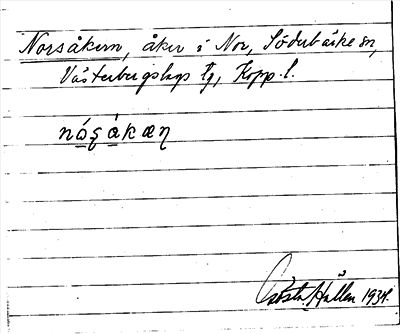 Norsåkern, åker i Nor, Söderbärke sn,
Västerbergslags tg, Kopp. l.
nå̱ʂå̱kæɳ
Gösta Hallén 1934.